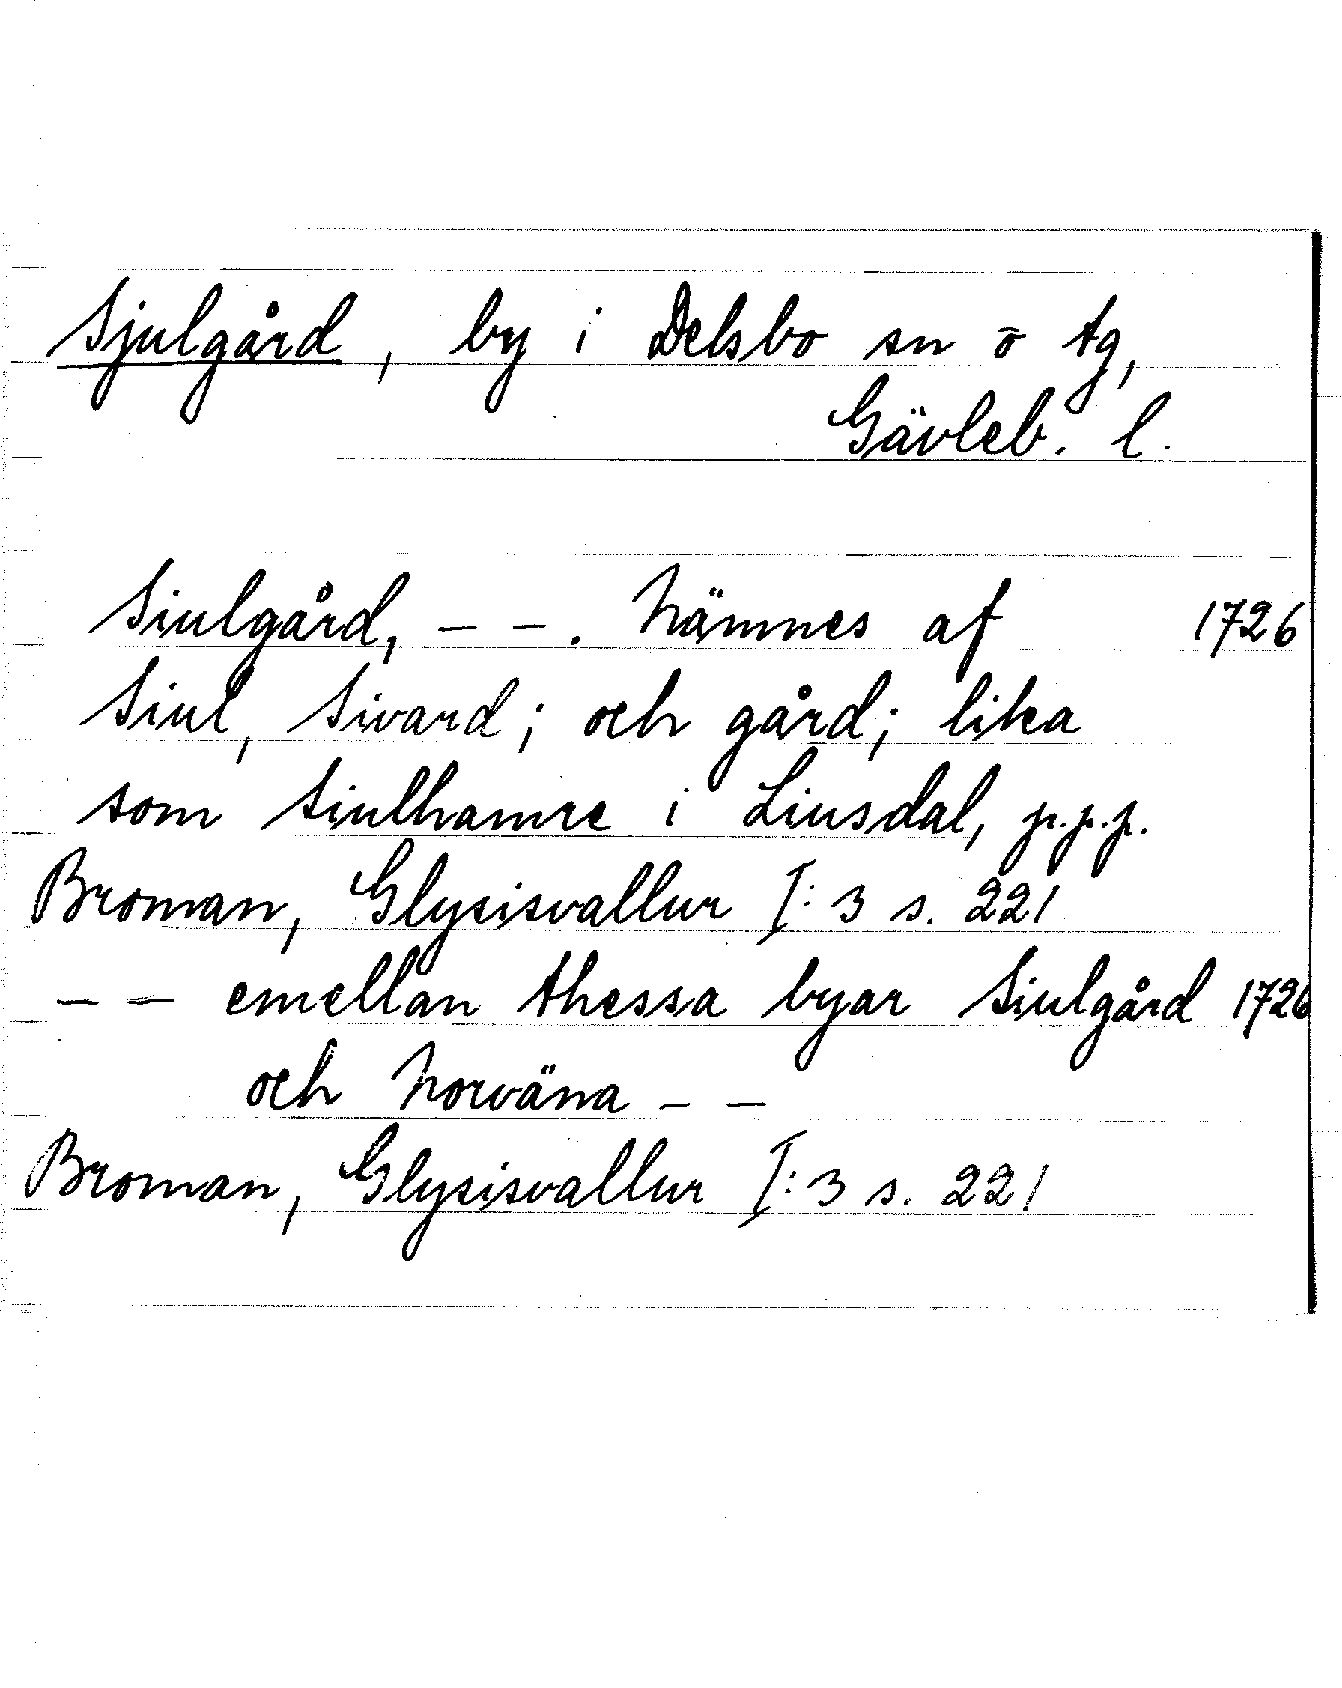 Sjulgård, by i Delsbo sn o tg,
Gävleb. l.
Siulgård, – –. Nämnes af 1726
Siul, Sivard; och gård; lika
som Siulhamre i Liusdal, p.p.p.
Broman, Glysisvallur I:3 s. 221
– – emellan thessa byar Siulgård 1726
och Norväna – –
Broman, Glysisvallur I:3 s. 221